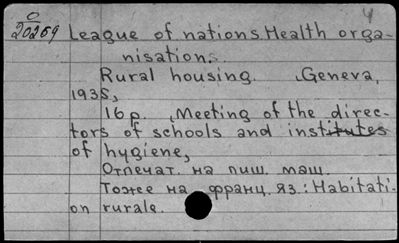 O
20269
4
League of nations Health orga-
nisation.
Rural housing. Geneva,
1935,
16 p. Meeting of the direc-
tors of schools and institutes
of hygiene,
Отпечат. на пиш. маш.
Тоже на франц. яз.: Habitati-
on rurale.